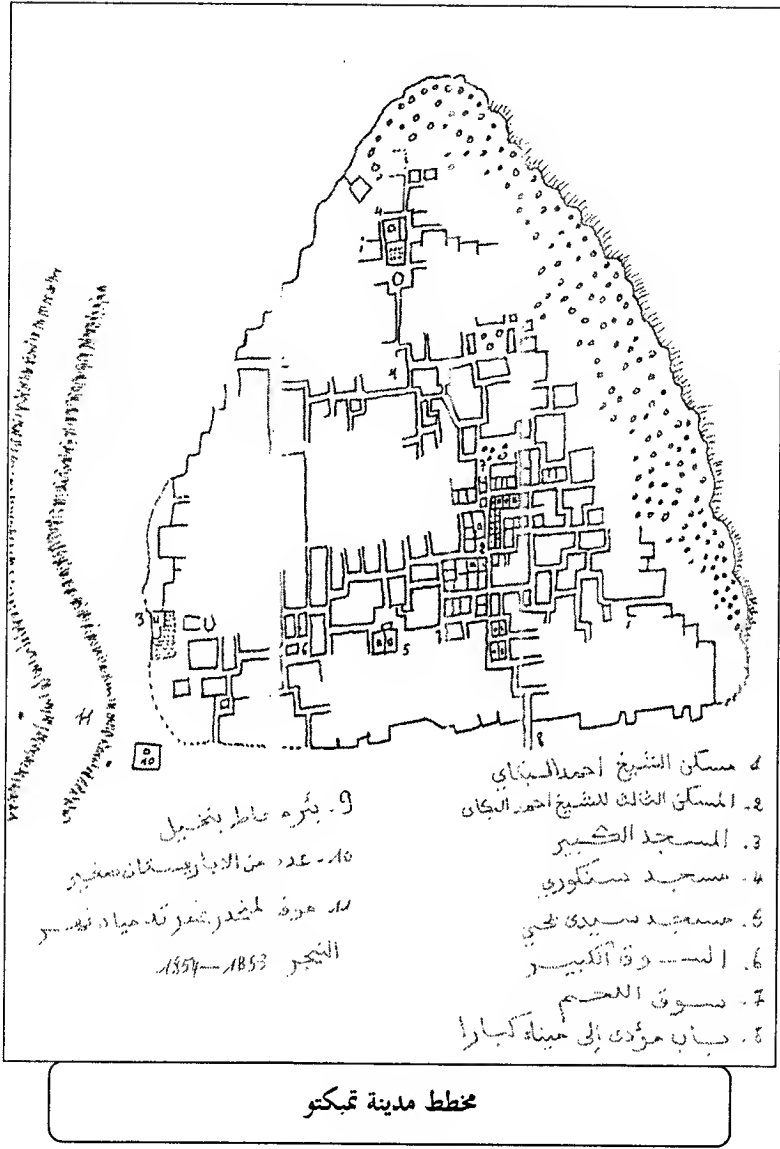 1 مسكن الشيخ احمد البكاي
2. المسكن الثالث للشيخ احمد البكاي
3. المسجد الكبير
4. مسجد سنكوري
5. مسجد سيدي يحي
6. السوق الكبير
7. سوق اللحم
8. باب مؤدى إلى ميناء كبارا
9. بئر محاط بنخيل
10. عدد من الابار بستان صغير
11 مياه
النيجر 1853-1854
مخطط مدينة تمبكتو
4
1
4
7
2
3
6
5
7
8
11
10